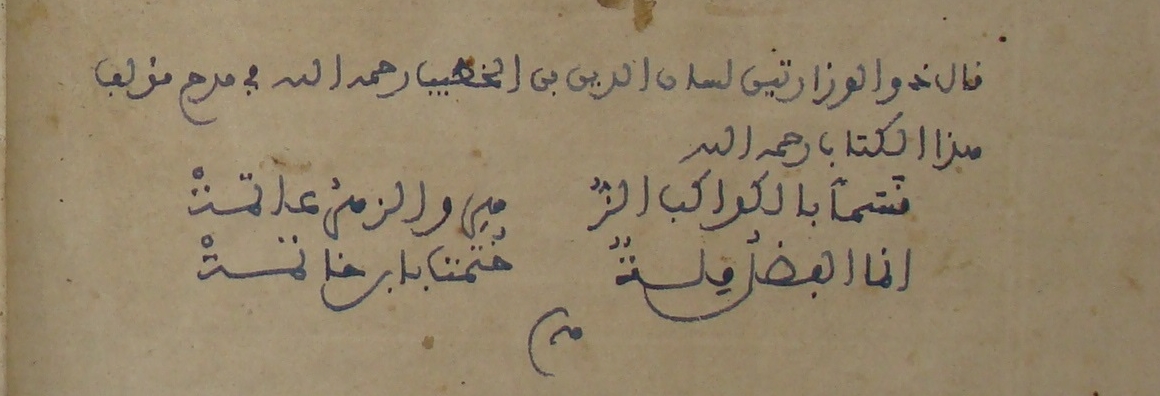 قال ذو الوزارتين لسان الدين بن الخطيب رحمه الله في مدح مؤلف
هذا الكتاب رحمه الله
قسماً بالكواكب الزُّ هر والزهرُ عاتمةْ
انما الفضلُ ملةٌ خُتمت بابن خاتمةْ